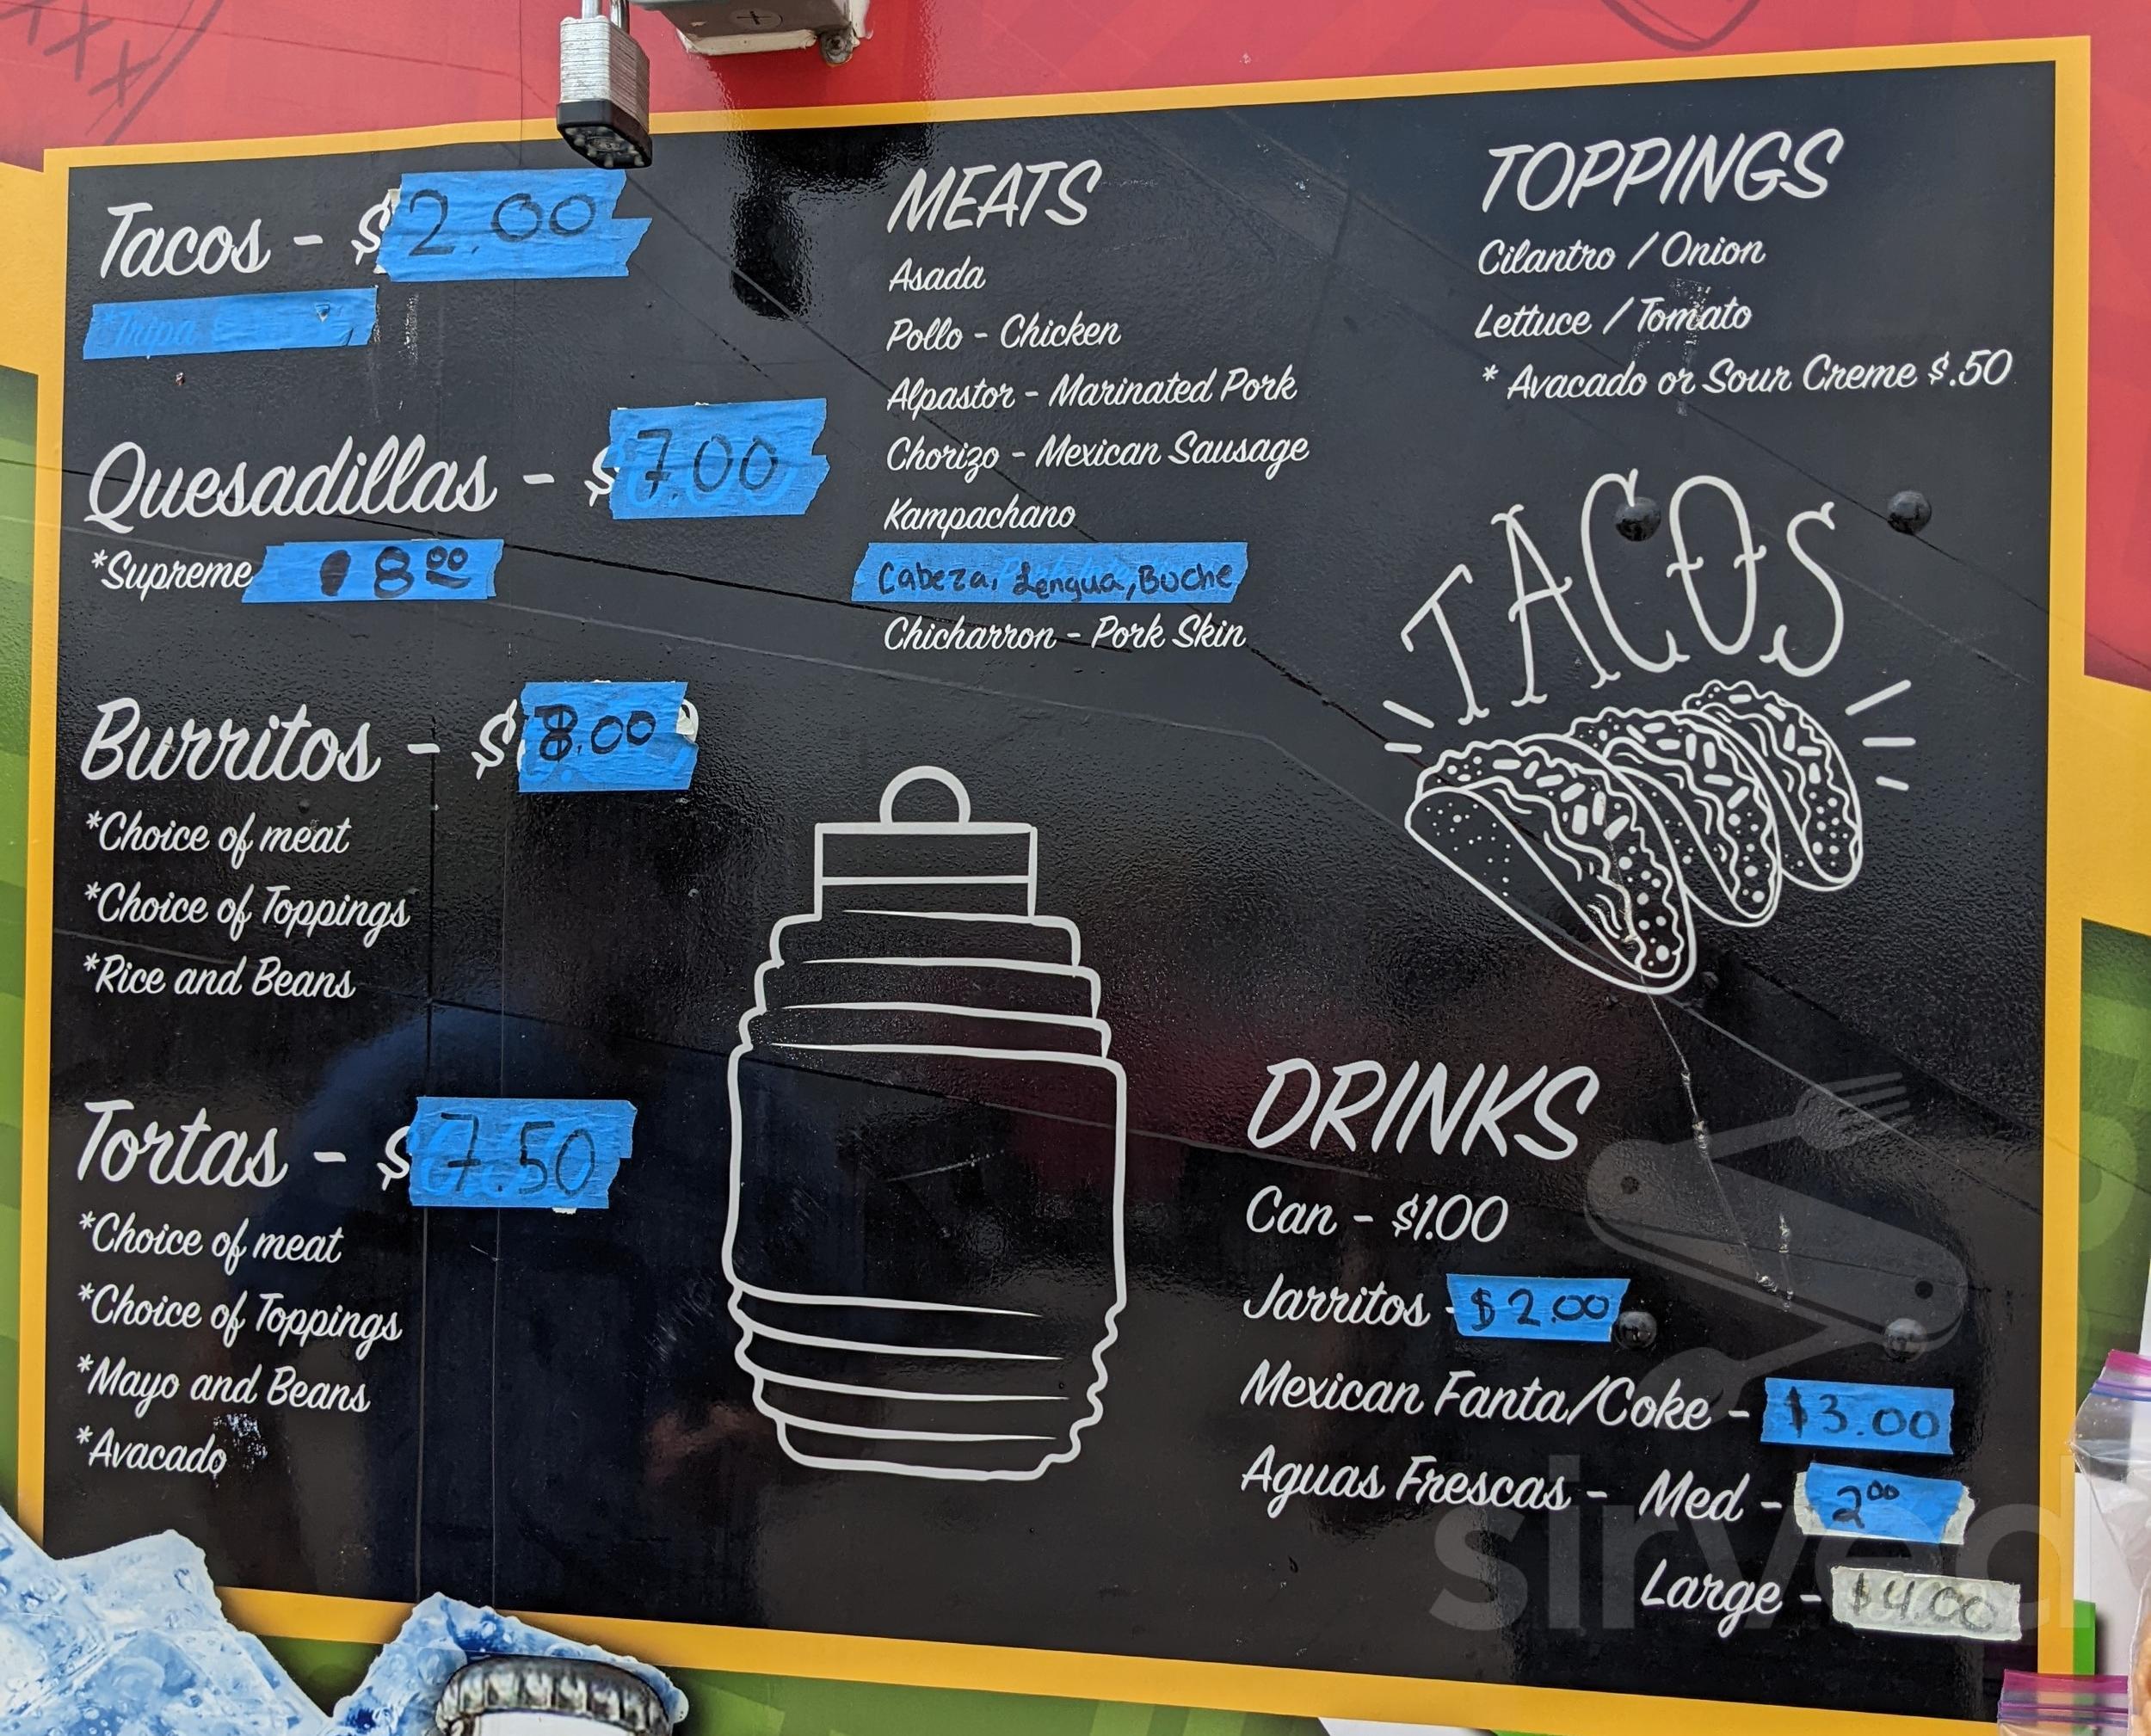 Tacos - $2.00
Quesadillas - $7.00
*Supreme 8.00
Burritos - $8.00
*Choice of meat
*Choice of Toppings
*Rice and Beans
Tortas - $7.50
*Choice of meat
*Choice of Toppings
*Mayo and Beans
*Avacado
MEATS
Asada
Pollo - Chicken
Alpastor - Marinated Pork
Chorizo - Mexican Sausage
Kampachano
Cabeza, Lengua, Buche
Chicharron - Pork Skin
TOPPINGS
Cilantro / Onion
Lettuce / Tomato
* Avacado or Sour Creme $.50
TACOS
DRINKS
Can - $1.00
Jarritos - $2.00
Mexican Fanta/Coke - $3.00
Aguas Frescas - Med - 2.00
Large - $4.00
sirved